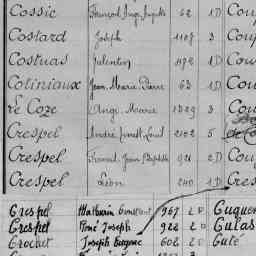 Cossic 62 1D Cou
Costard Joseph 1109 3 Cou
Costuas Valentin 1192 1D Cou
Cotiniaux Jean Marie Pierre 63 1D Cou
Le Coze Ange Marie 1329 3 Cou
Crespel André Ernest Louis 2102 5
Crespel François Jean Baptiste 921 2D Cou
Crespel Léon 240 1D Cres
Crespel Mathurin Constant 967 2D Cugue
Crespel René Joseph 922 2D Culas
Crochet Joseph Eugene 602 2D Cute